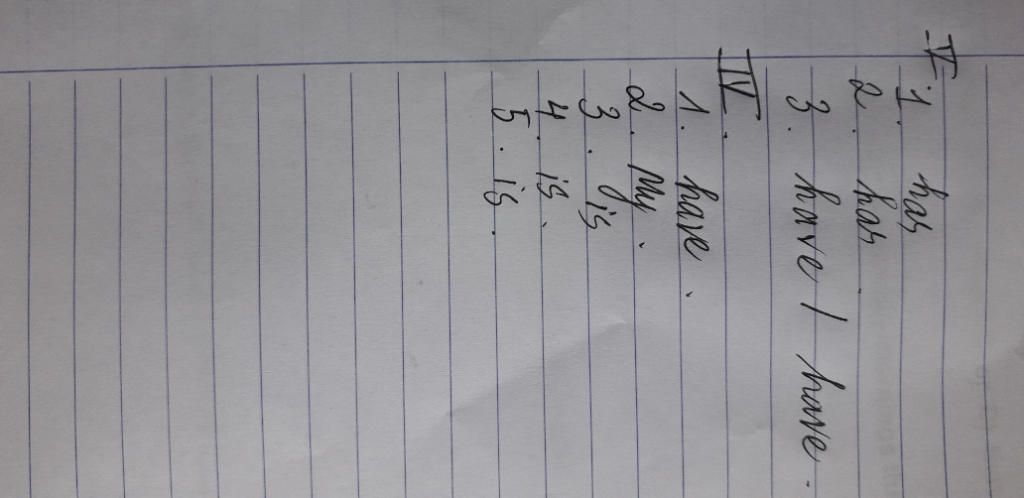 V. 1. has
2. has
3. have / have.
IV.
1. have.
2. My.
3. is
4. is.
5. is.